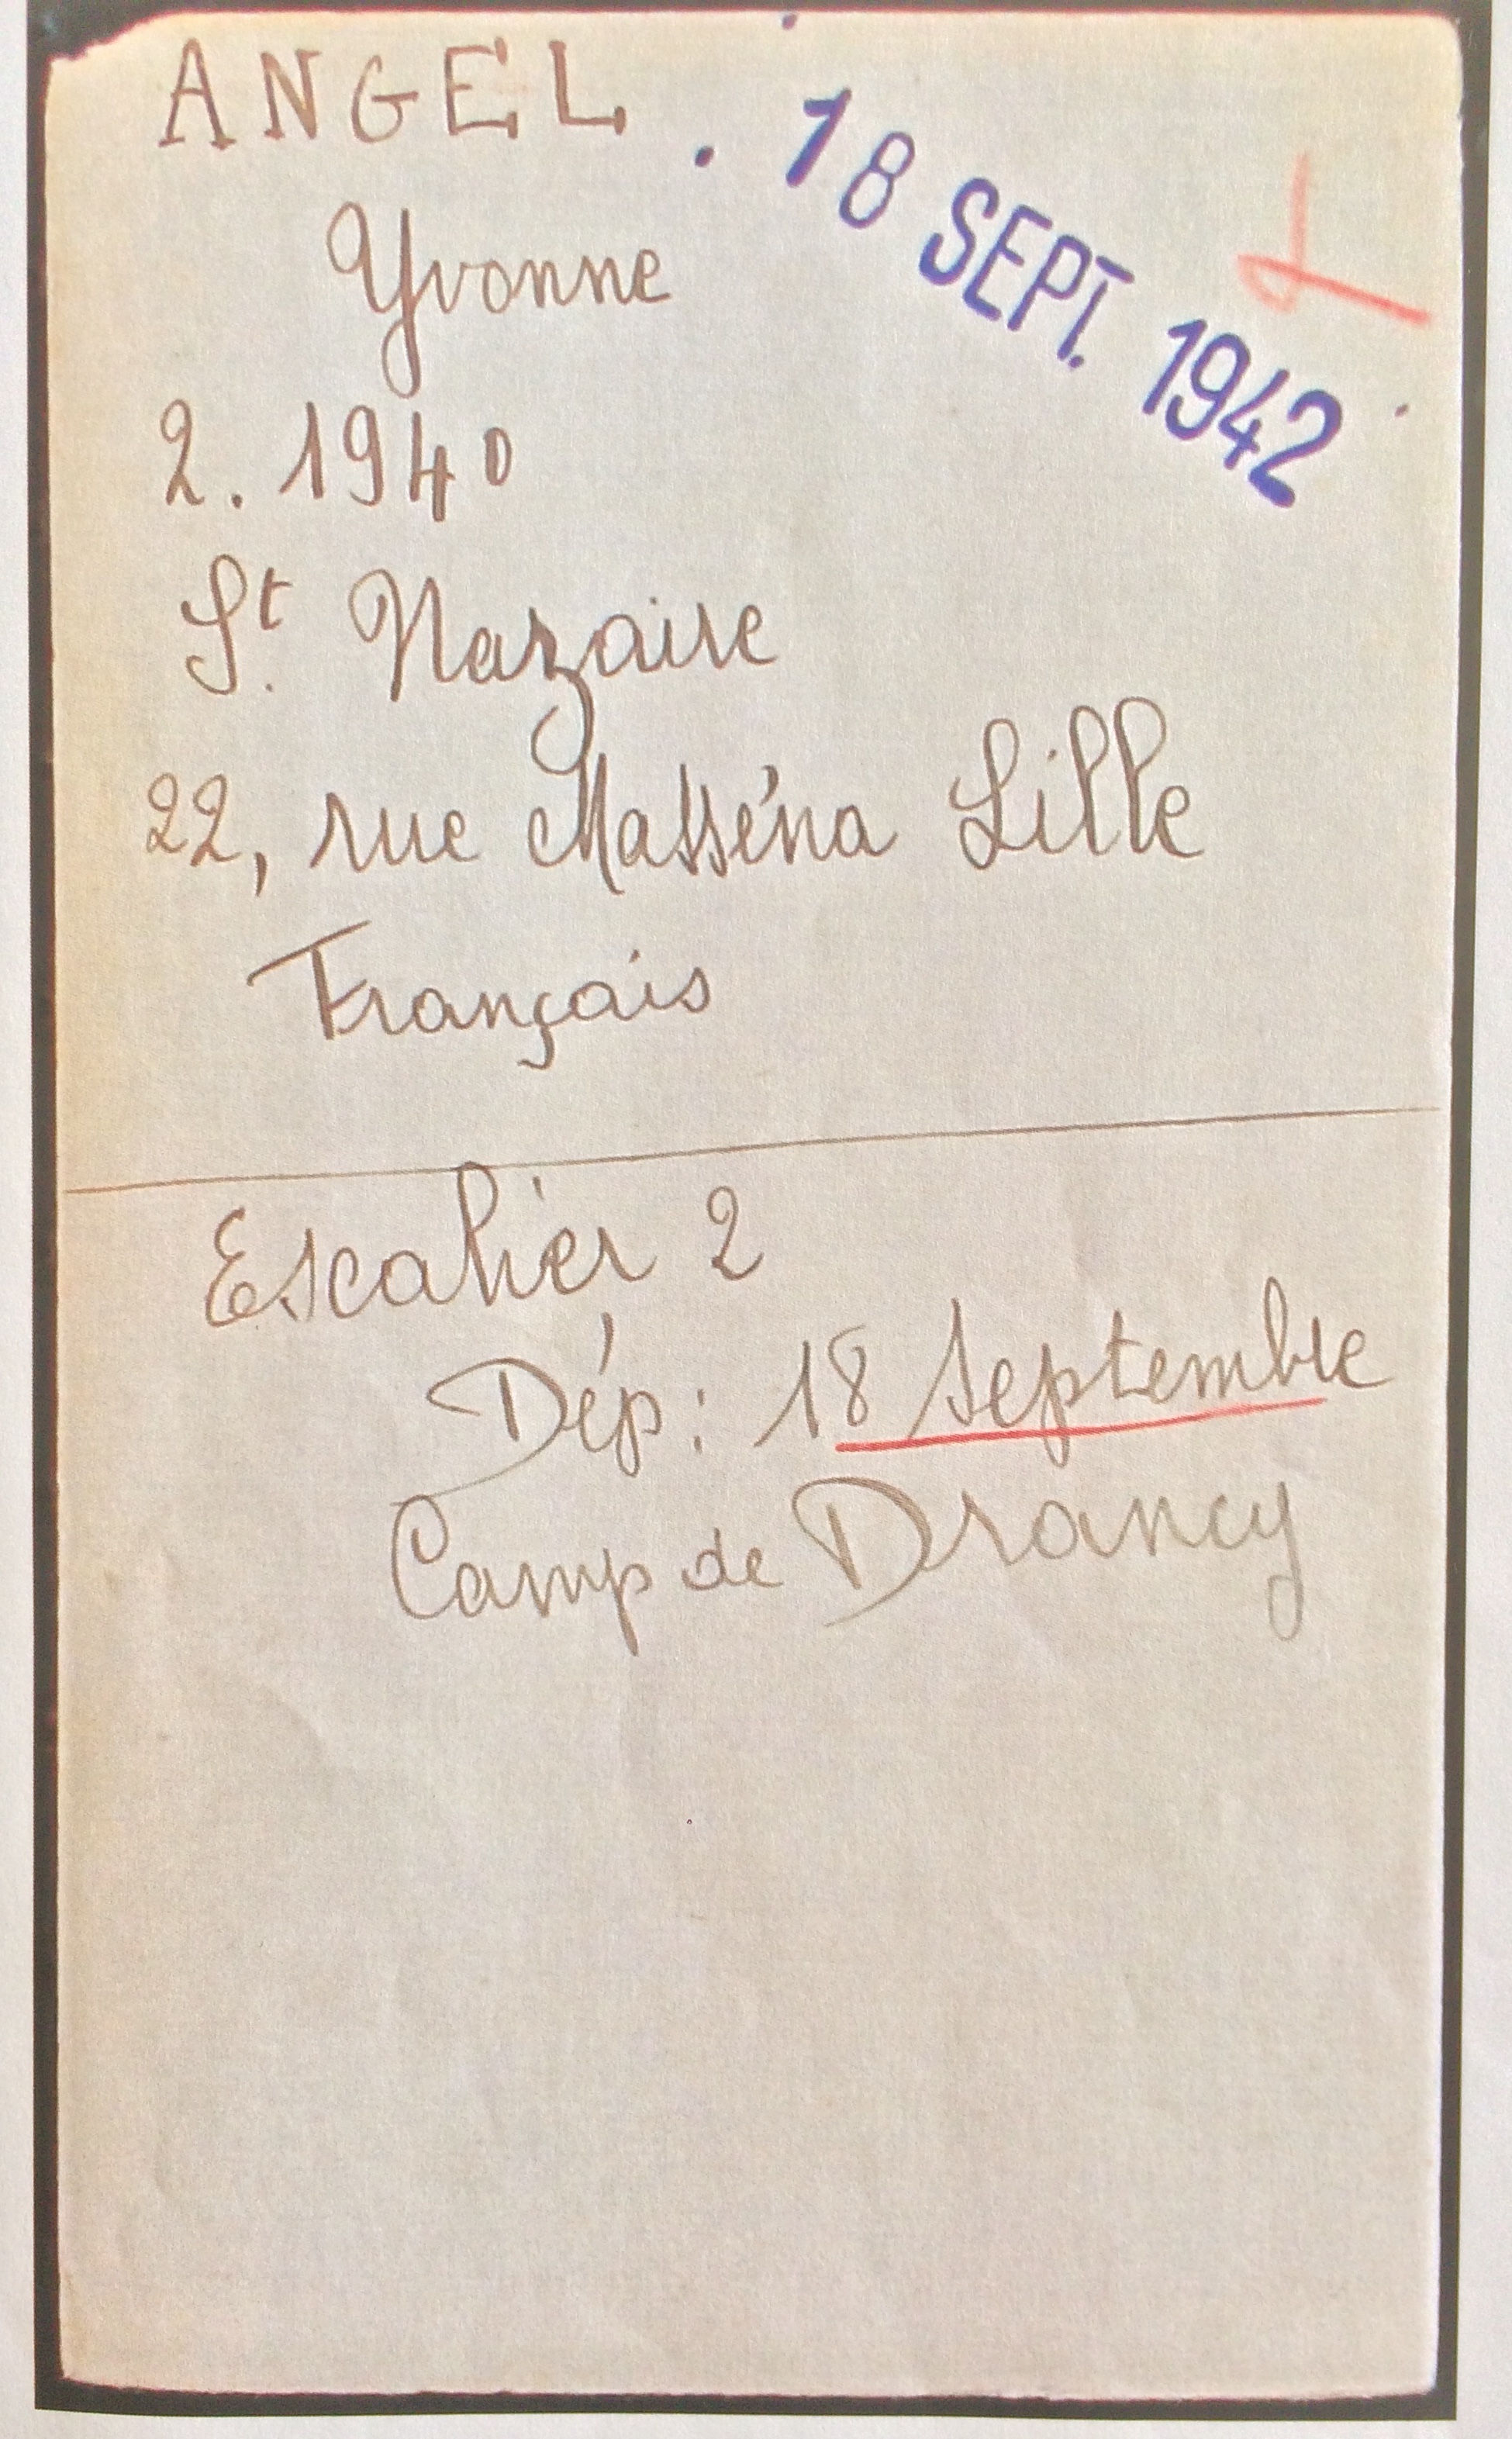 ANGEL
18 SEPT. 1942
Yvonne
2. 1940
St Nazaire
22, rue Masséna Lille
Français
Escalier 2
Dép: 18 Septembre
Camp de Drancy